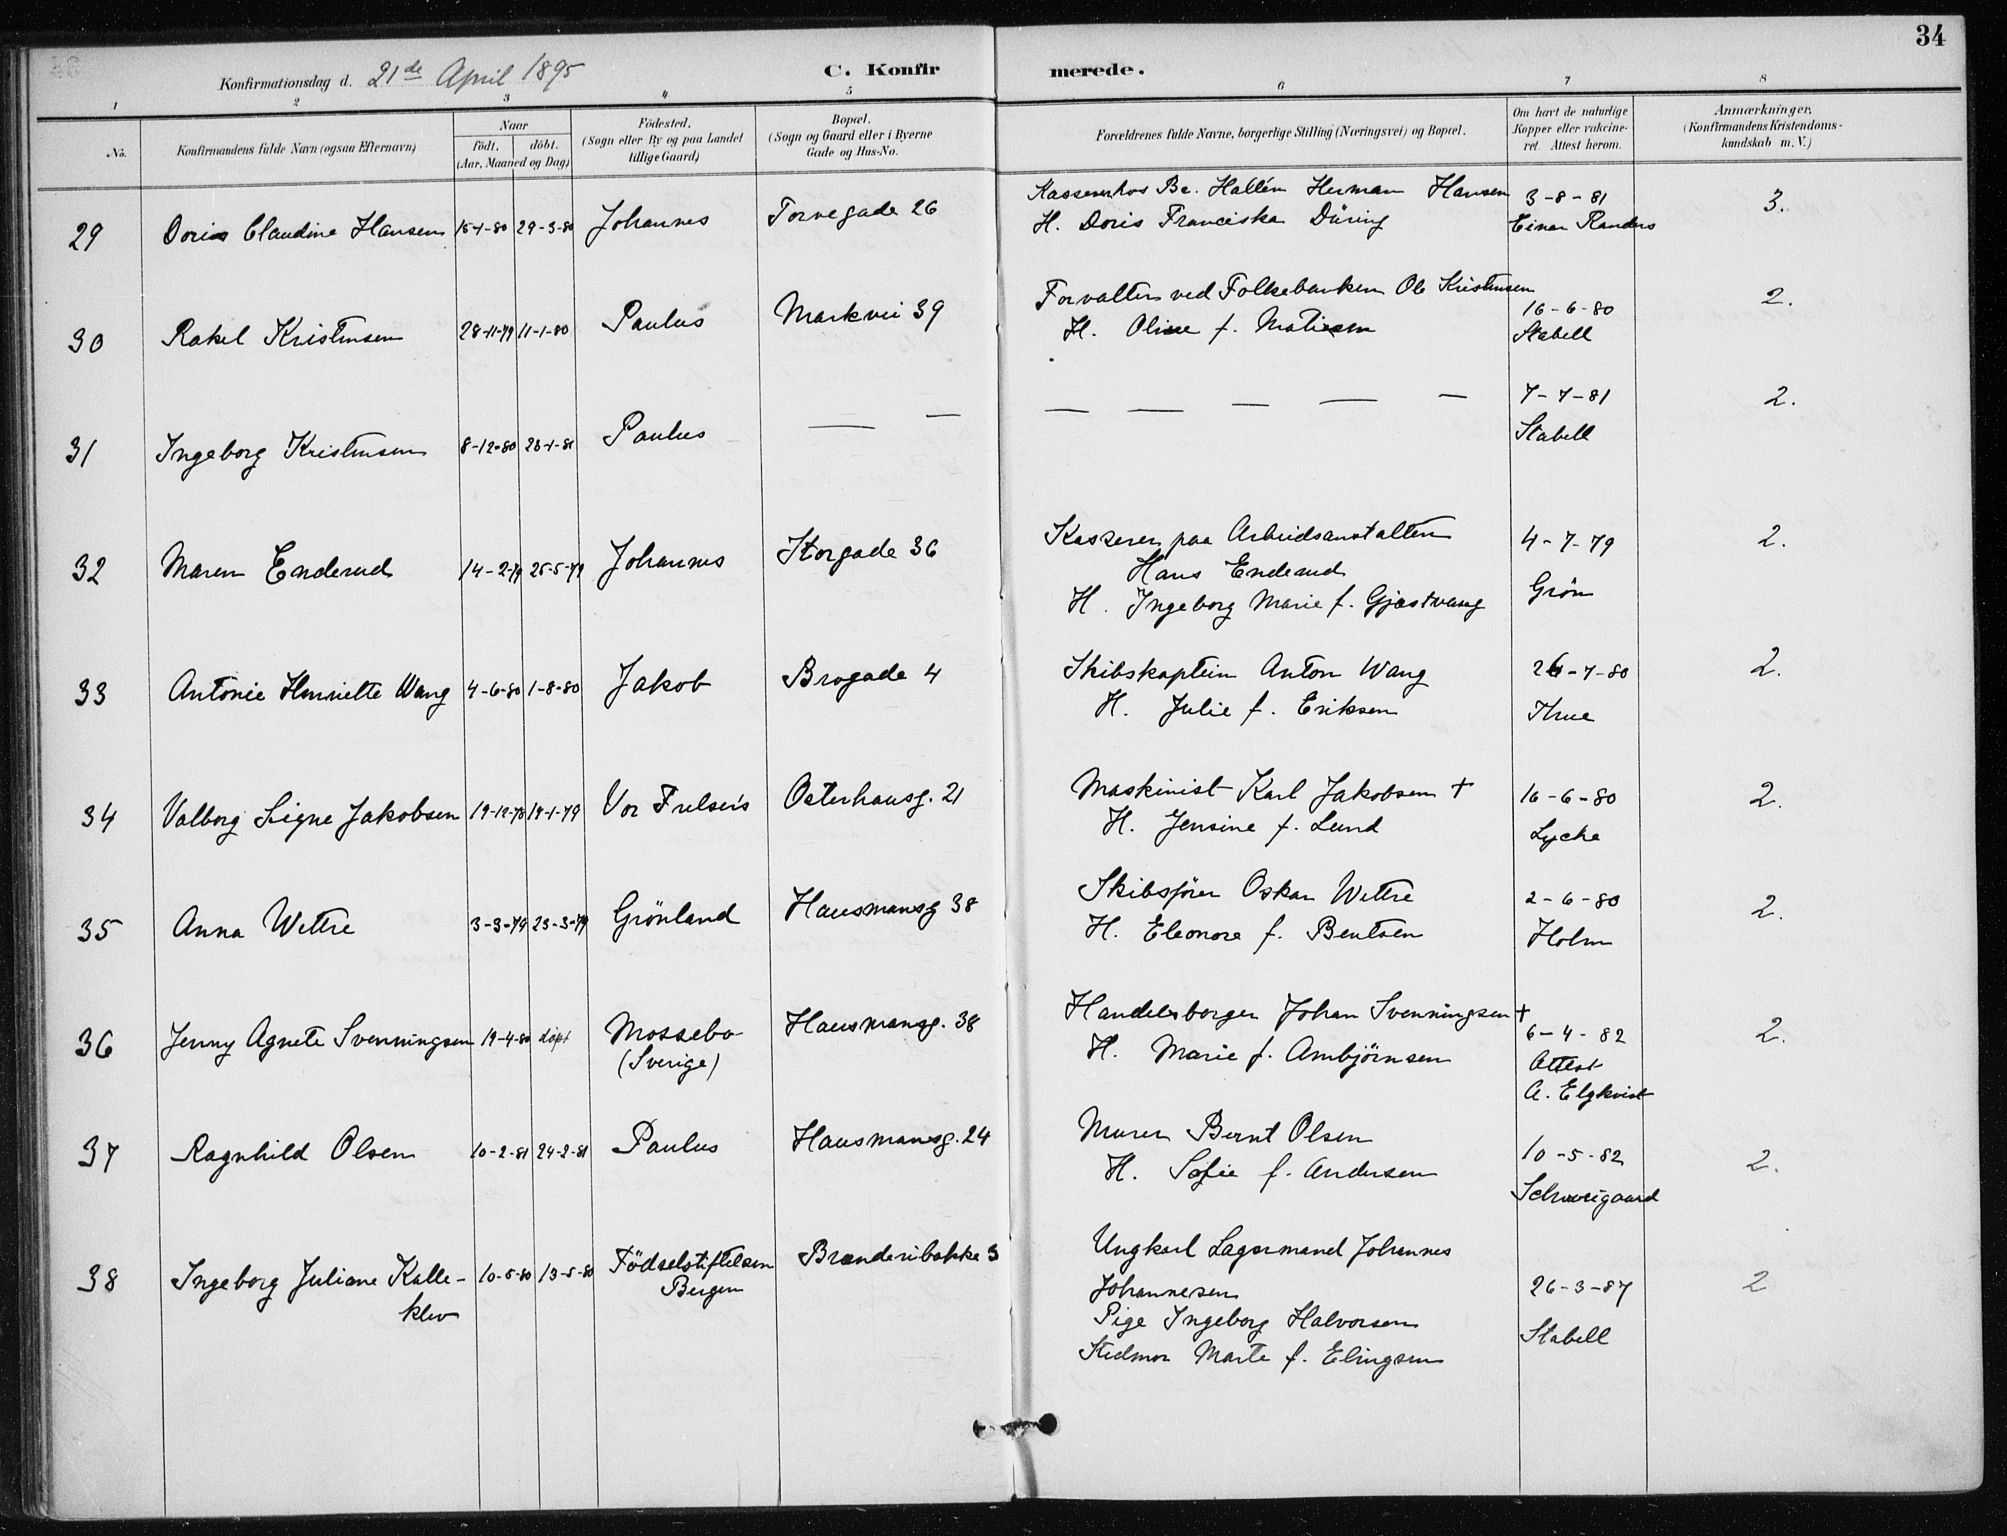 34
Konfirmationsdag d. 21de April 1895
C. Konfirmerede.
1 2 3 4 5 6 7 8
No.
Konfirmandens fulde Navn (ogsaa Efternavn)
Naar
födt. döbt.
(Aar, Maaned og Dag)
Födested.
(Sogn eller By og paa Landet
tillige Gaard)
Bopæl.
(Sogn og Gaard eller i Byerne
Gade og Hus-No.
Forældrenes fulde Navne, borgerlige Stilling (Næringsvei) og Bopæl.
Om havt de naturlige
Kopper eller vakcine-
ret. Attest herom.
Anmærkninger,
(Konfirmandens Kristendoms-
kundskab m. V.)
29 Doris Claudine Hansen 15-1-80 29-3-80 Johannes Torvegade 26
Kasserer hos Br. Hallén Herman Hansen
H. Doris Franciska Düring
3-8-81
Einar Randers
3.
30 Rakel Kristensen 28-11-79 11-1-80 Paulus Markvei 39
Forvalter ved Folkebanken Ole Kristensen
H. Oline f. Matiesen
16-6-80
Stabell
2.
31 Ingeborg Kristensen 8-12-80 23-1-81 Paulus — —
— — — — —
7-7-81
Stabell
2.
32 Maren Enderud 14-2-79 25-5-79 Johannes Storgade 36
Kasserer paa Arbeidsanstalten
Hans Enderud
H. Ingeborg Marie f. Gjæstvang
4-7-79
Grön
2.
33 Antonie Henriette Wang 4-6-80 1-8-80 Jakob Brogade 4
Skibskaptein Anton Wang
H. Julie f. Eriksen
-7-80
Thue
2.
34 Valborg Signe Jakobsen 19-12-78 19-1-79 Vor Frelsers Osterhausg. 21
Maskinist Karl Jakobsen +
H. Jensine f. Lund
16-6-80
Lyche
2.
35 Anna Wettre 3-3-79 23-3-79 Grönland Hausmansg 38
Skibsförer Oskar Wettre
H. Eleonore f. Bentsen
2-6-80
Holm
2.
36 Jenny Agnete Svenningsen 19-4-80 döpt Mossebo
(Sverige)
Hausmansg. 38
Handelsborger Johan Svenningsen +
H. Marie f. Ambjörnsen
6-4-82
Attest
A. Elgkvist
2.
37 Ragnhild Olsen 10-2-81 24-2-81 Paulus Hausmansg. 24
Murer Bernt Olsen
H. Sofie f. Andersen
10-5-82
Schweigaard
2.
38 Ingeborg Juliane Kalle-
klev
10-5-80 13-5-80 Födselsstiftelsen
Bergen
Branderibakke 3
Ungkarl Lagermand Johannes
Johannesen
Pige Ingeborg Halvorsen
Stedmor Marte f. Elingsen
26-3-87
Stabell
2